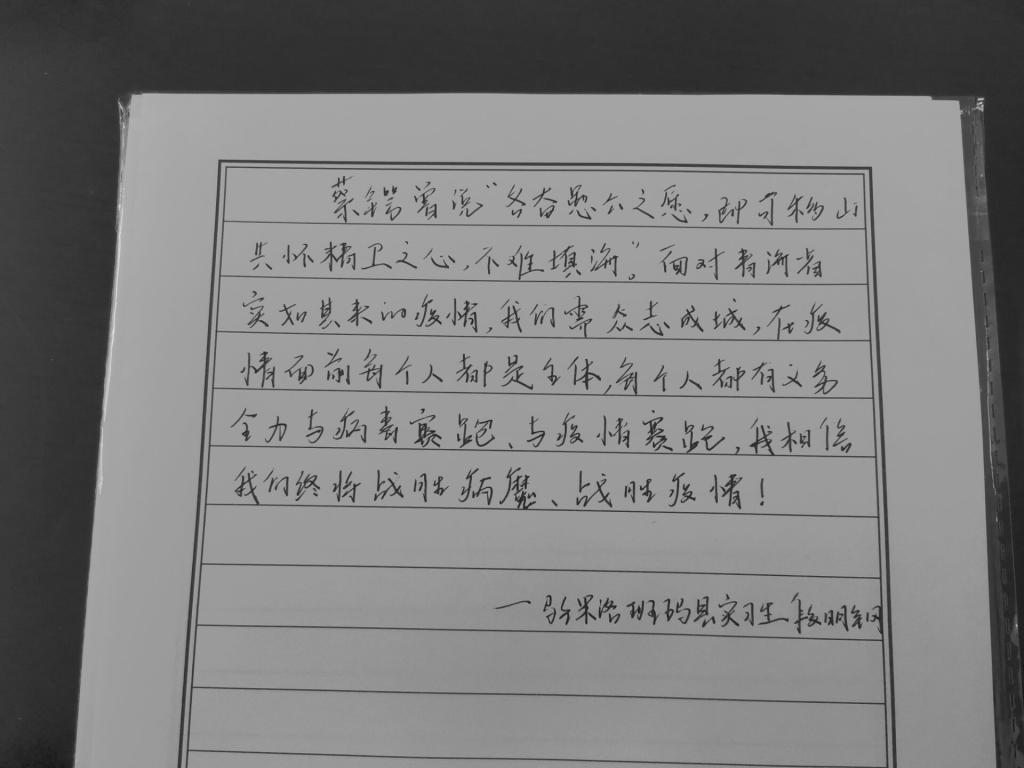 蔡锷曾说“各奋愚公之愿，即可移山
共怀精卫之心，不难填海”。面对青海省
突如其来的疫情，我们需众志成城，在疫
情面前每个人都是主体，每个人都有义务
全力与病毒赛跑、与疫情赛跑，我相信
我们终将战胜病魔、战胜疫情！
—果洛班玛县实习生 段明钢